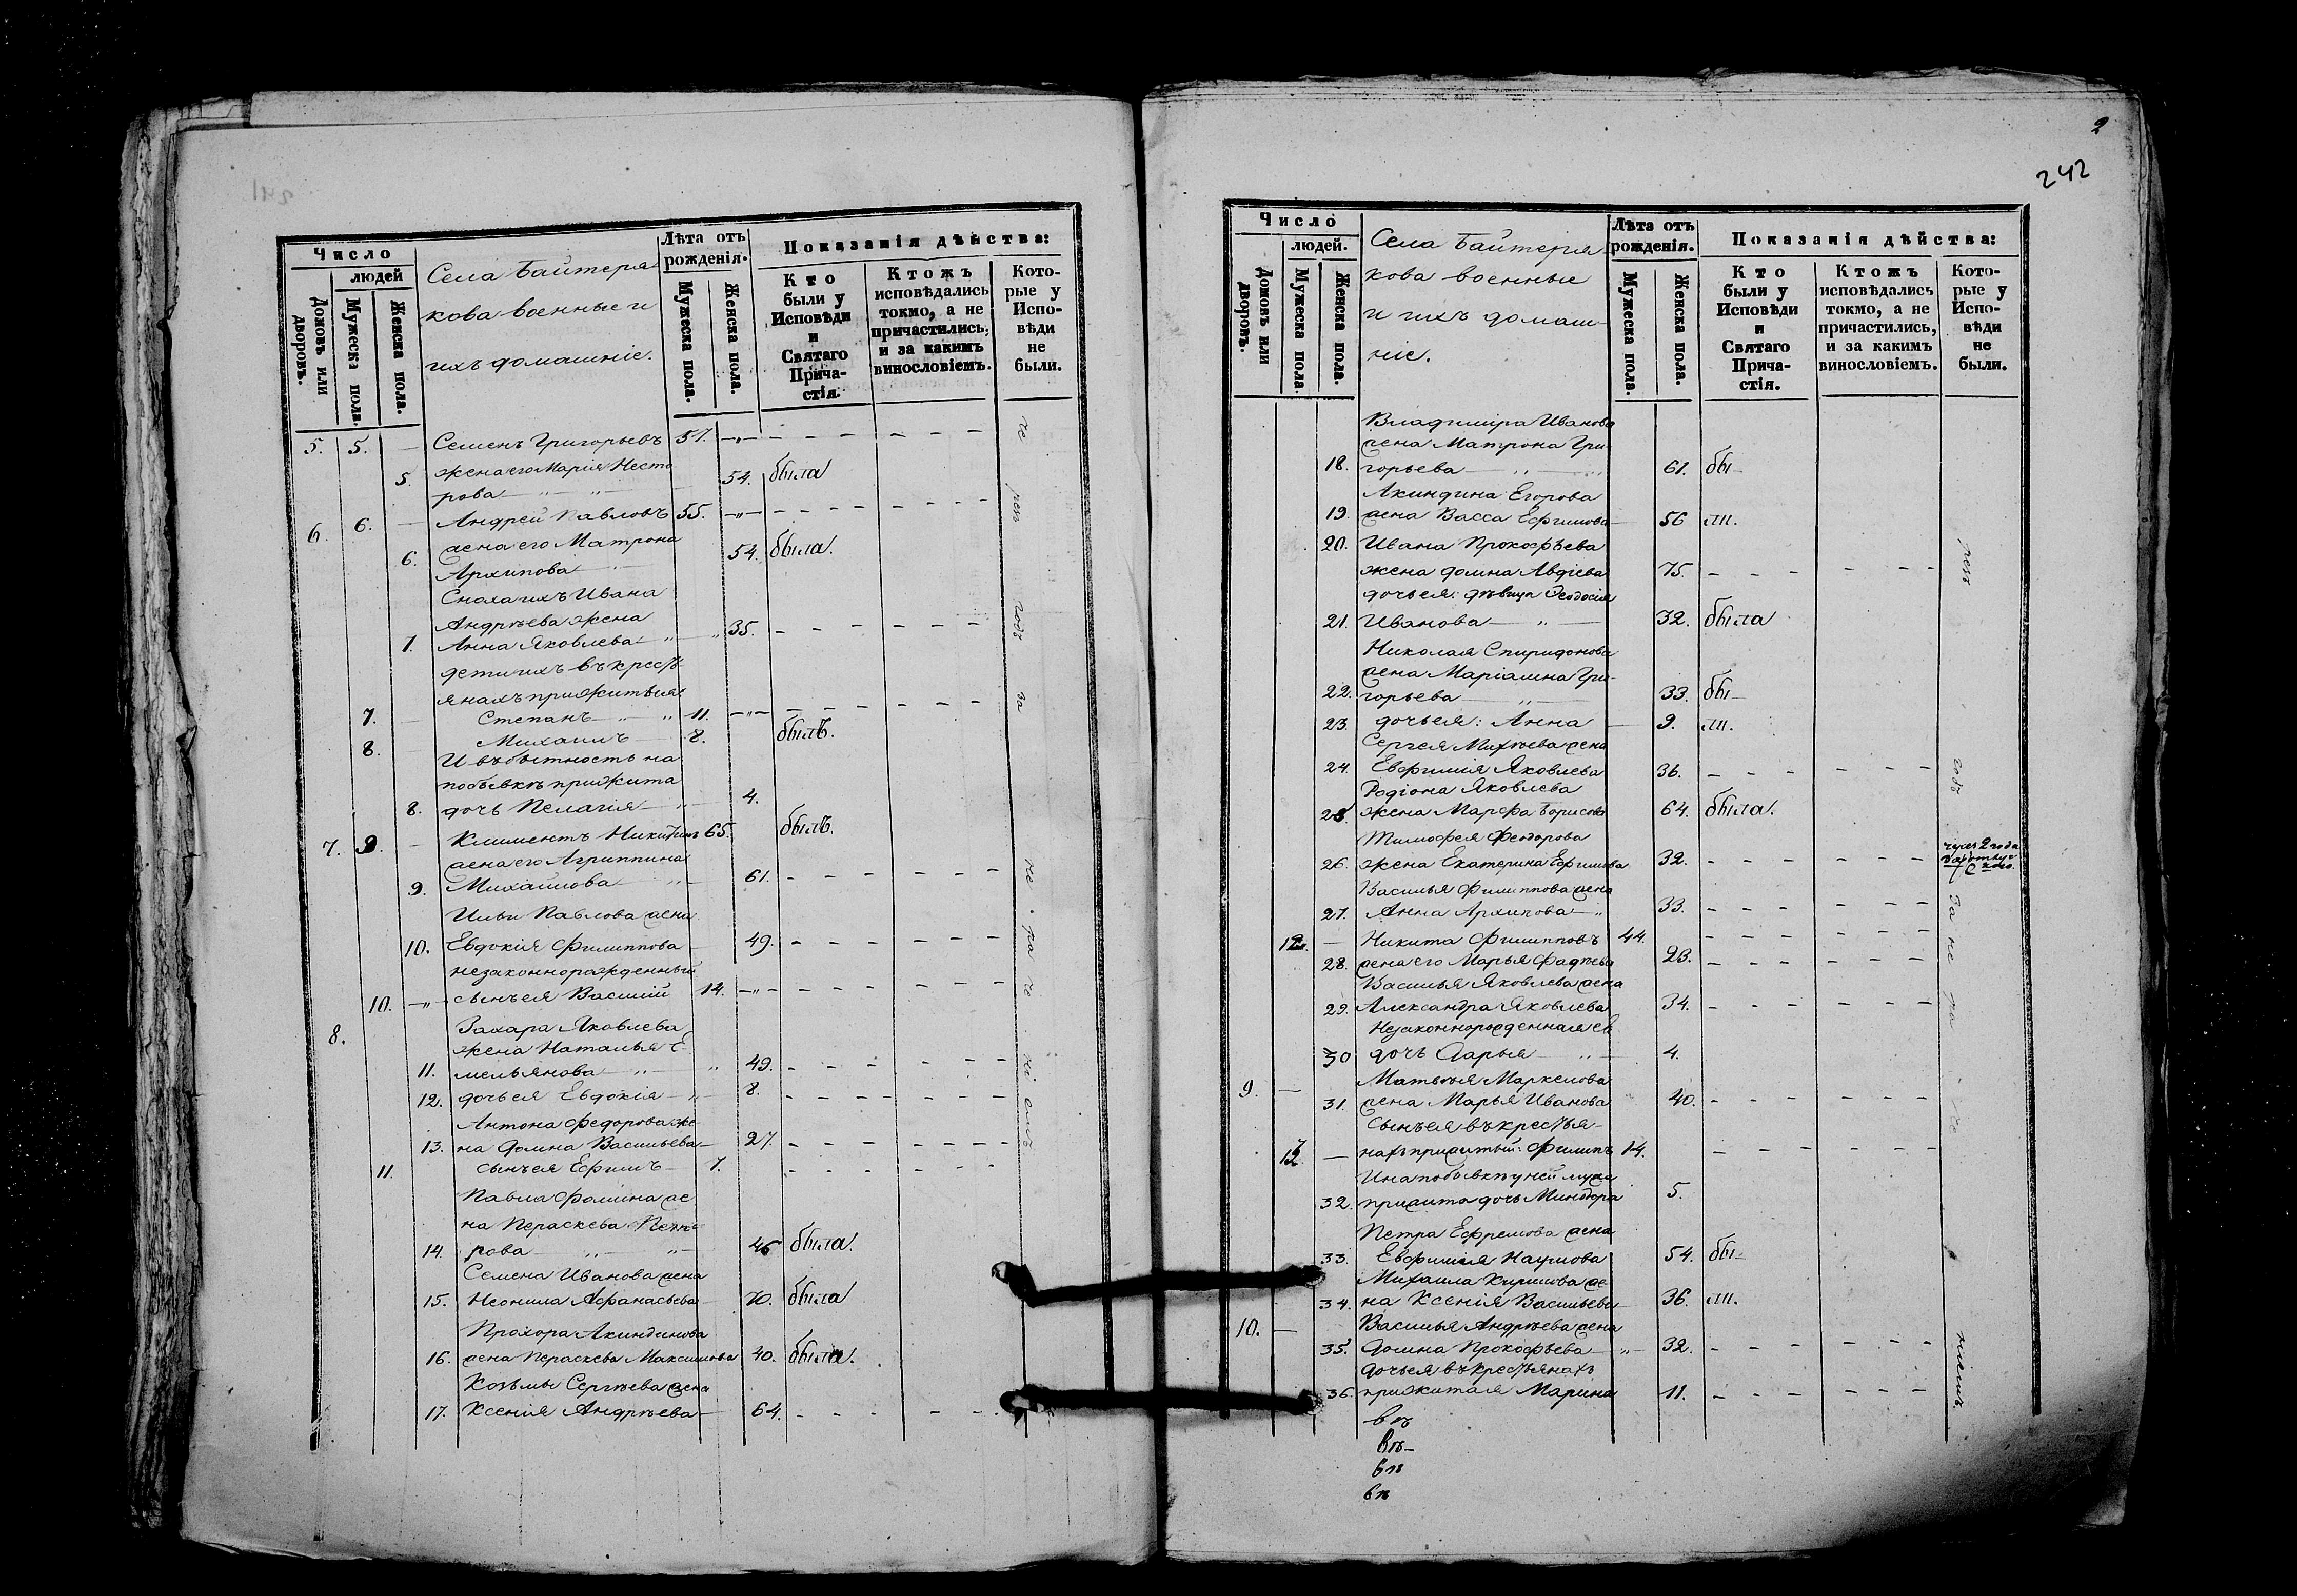 241
Число
людей
Домовъ или дворовъ.
Мужеска пола.
Женска пола.
Села Байтеря-
кова военные и
ихъ домашніе.
Лѣта отъ
рожденія.
Мужеска пола.
Женска пола.
Показанія дѣйства:
Кто
были у
Исповѣди
и
Святаго
Прича-
стія.
Ктожъ
исповѣдались
токмо, а не
причастились,
и за какимъ
винословіемъ.
Кото-
рые у
Испо-
вѣди
не
были.
5. 5. — Семенъ Григорьевъ 57.
жена его Марія Несто
5. рова 54. была
6. 6. — Андрей Павловъ 55.
жена его Матрона
6. Архипова 54. была.
Сноха ихъ Ивана
Андрѣева жена
7. Анна Яковлева 35.
дети ихъ въ кресть
янахъ прижитыя
7. Степанъ 11.
8. Михаилъ 8. былъ.
И въ бытность на
побывкѣ прижита
8. дочь Пелагія 4.
7. 9. — Климентъ Никитинъ 65. былъ.
жена его Агриппина
9. Михайлова 61.
Ильи Павлова жена
10. Евдокія Филиппова 49.
незаконнорожденный
10. сынъ ея Василій 14.
8. Захара Яковлева
жена Наталья Е
11. мельянова 49.
12. дочь ея Евдокія 8.
Антона Федорова же
13. на Домна Васильева 27.
11. сынъ ея Ефимъ 7.
Павла Фомина же
на Пераскева Пет
14. рова 46 была.
Семена Иванова жена
15. Неонила Афанасьева 70. была
Прохора Акиндинова
16. жена Пераскева Максимова 40. была.
Козьмы Сергѣева жена
17. Ксенія Андрѣева 64.
2
242
Число
людей.
Домовъ или дворовъ.
Мужеска пола.
Женска пола.
Села Байтеря-
кова военные
и ихъ домаш-
ніе.
Лѣта отъ
рожденія.
Мужеска пола.
Женска пола.
Показанія дѣйства:
Кто
были у
Исповѣди
и
Святаго
Прича-
стія.
Ктожъ
исповѣдались
токмо, а не
причастились,
и за какимъ
винословіемъ.
Кото-
рые у
Испо-
вѣди
не
были.
Владиміра Иванова
жена Матрона Гри-
18. горьева 61. бы-
Акиндина Егорова
19. жена Васса Ефимова 56 ли.
20. Ивана Прокофьева
жена Домна Авдіева 75.
дочь ея: дѣвица Ѳеодосія
21. Иванова 32. была
Николая Спиридонова
жена Маріамна Гри-
22. горьева 33. бы-
23. дочь ея: Анна 9. ли.
Сергея Михѣева жена
24. Евфимія Яковлева 36.
Родіона Яковлева
25. жена Марфа Борисова 64. была.
Тимофея Феодорова
26. жена Екатерина Ефимова 32.
Василья Филиппова жена
27. Анна Архипова 33.
12. — Никита Филипповъ 44.
28. жена его Марья Фадѣева 23.
Василья Яковлева жена
29. Александра Яковлева 34.
Незаконнорожденная ея
30 дочь Дарья 4.
9. — Матвѣя Маркелова
31. жена Марья Иванова 40.
Сынъ ея въ крестья-
13. — нахъ прижитый: Филипъ 14.
И на побывкѣ у ней мужа
32. прижита дочь Минодора 5.
Петра Ефремова жена
33. Евфимія Наумова 54. бы-
Михаила Кирилова же
34. на Ксенія Васильева 36. ли.
10. — Василья Андрѣева жена
35. Домна Прокофьева 32.
Дочь ея въ крестьянахъ
36. прижитая Марина 11.